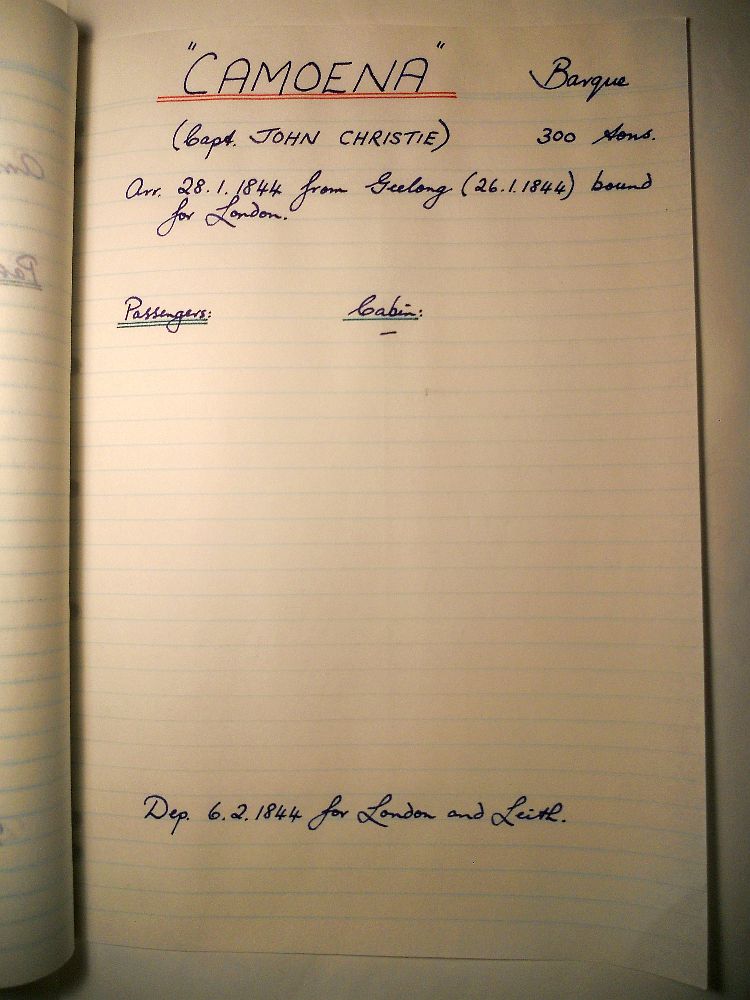 "CAMOENA" Barque
(Capt. JOHN CHRISTIE) 300 tons.
Arr. 28.1.1844 from Geelong (26.1.1844) bound
for London.
Passengers: Cabin:
—
Dep. 6.2.1844 for London and Leith.